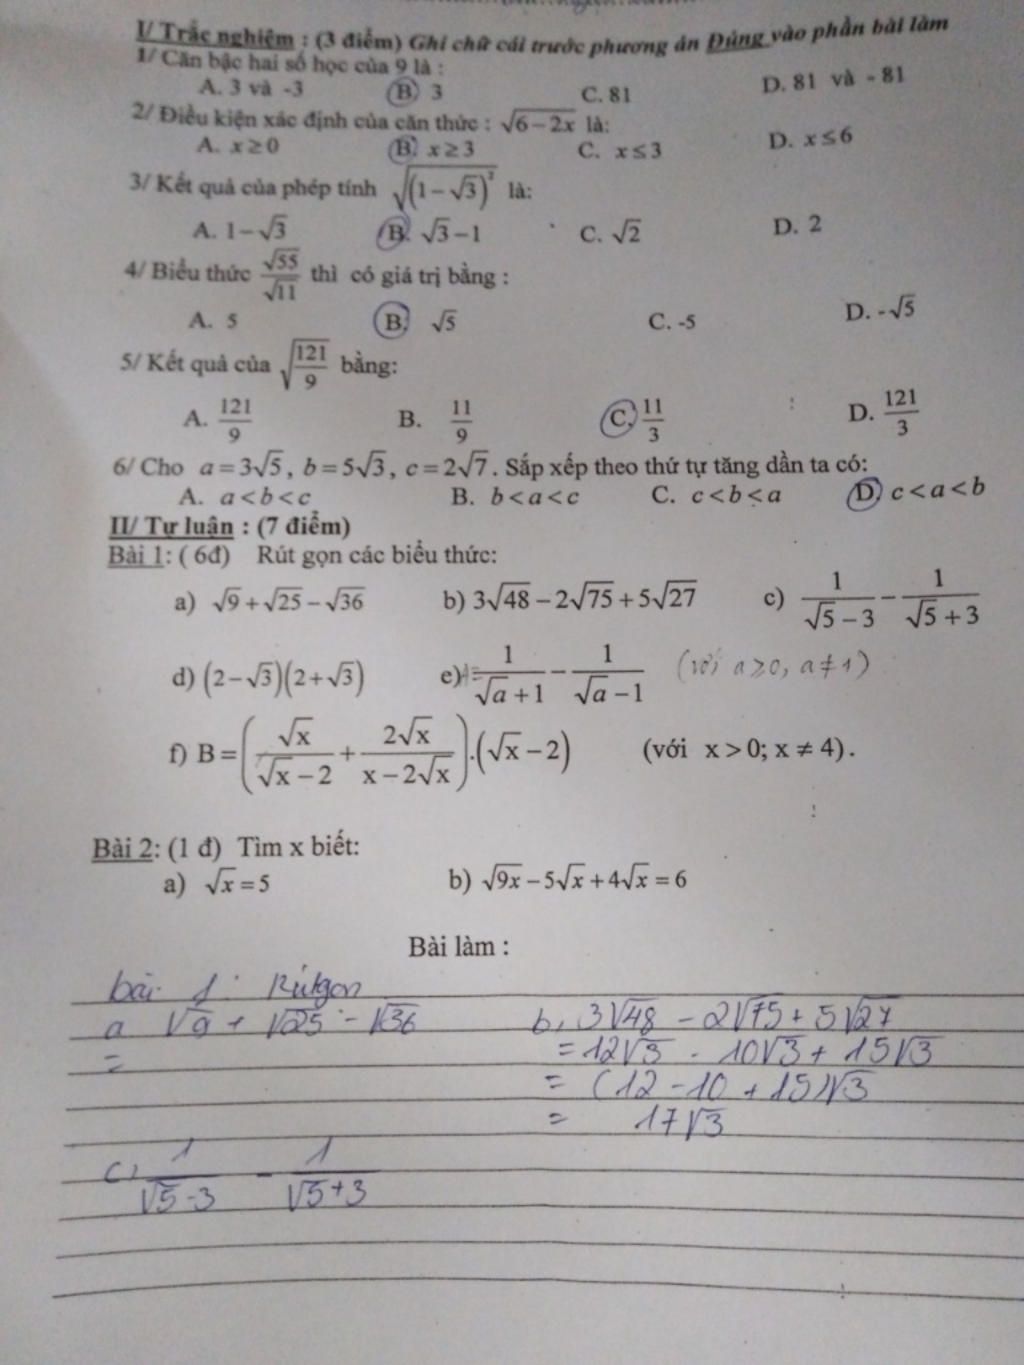 I/ Trắc nghiệm : (3 điểm) Ghi chữ cái trước phương án Đúng vào phần bài làm
1/ Căn bậc hai số học của 9 là :
A. 3 và -3 B. 3 C. 81 D. 81 và - 81
2/ Điều kiện xác định của căn thức : √(6−2x) là:
A. x≥0 B. x≥3 C. x≤3 D. x≤6
3/ Kết quả của phép tính √((1−√3)²) là:
A. 1−√3 B. √3−1 C. √2 D. 2
4/ Biểu thức √55/√11 thì có giá trị bằng :
A. 5 B. √5 C. -5 D. -√5
5/ Kết quả của √(121/9) bằng:
A. 121/9 B. 11/9 C. 11/3 D. 121/3
6/ Cho a=3√5, b=5√3, c=2√7. Sắp xếp theo thứ tự tăng dần ta có:
A. a<b<c B. b<a<c C. c<b<a D. c<a<b
II/ Tự luận : (7 điểm)
Bài 1: ( 6đ) Rút gọn các biểu thức:
a) √9+√25−√36 b) 3√48−2√75+5√27 c) 1/(√5−3) − 1/(√5+3)
d) (2−√3)(2+√3) e) A= 1/(√a+1) − 1/(√a−1) (với a≥0, a≠1)
f) B=(√x/(√x−2) + 2√x/(x−2√x)).(√x−2) (với x>0; x≠4).
Bài 2: (1 đ) Tìm x biết:
a) √x=5 b) √9x−5√x+4√x=6
Bài làm :
bài 1: Rút gọn
a √9 + √25 - √36 b, 3√48 - 2√75 + 5√27
= = 12√3 - 10√3 + 15√3
= (12 - 10 + 15)√3
= 17√3
c) 1/(√5-3) - 1/(√5+3)